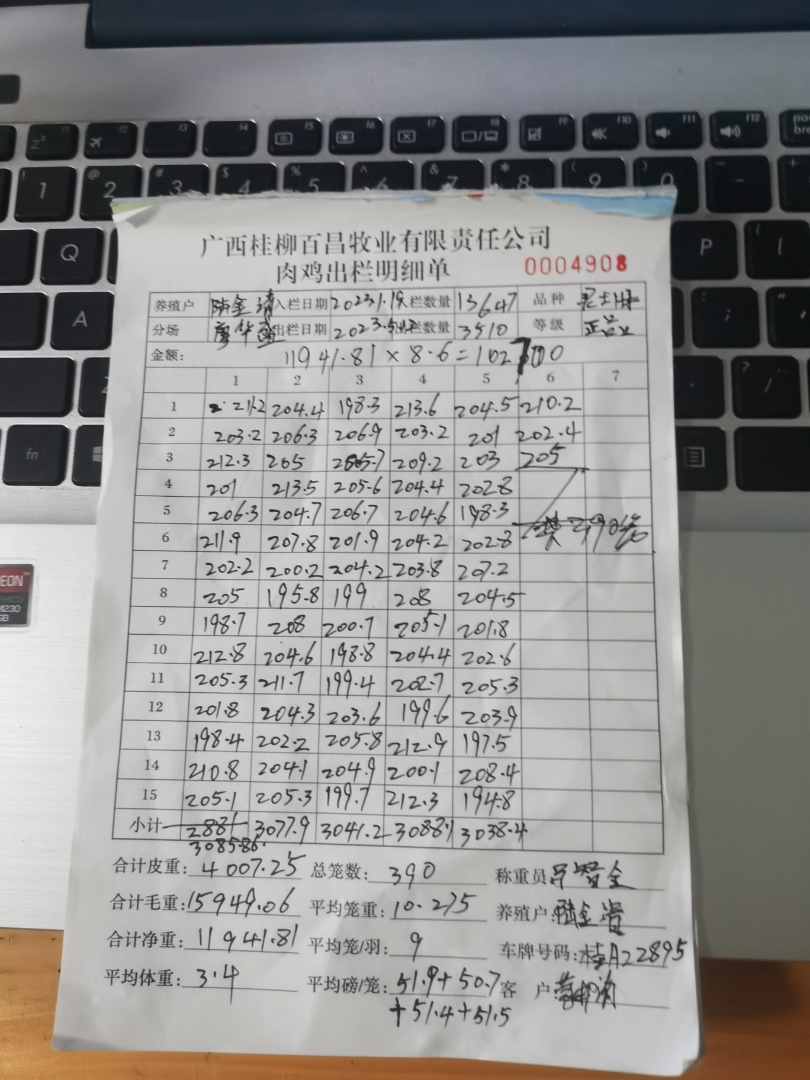 广西桂柳百昌牧业有限责任公司
肉鸡出栏明细单 0004908
养殖户 入栏日期 2023.1.19 入栏数量 13647 品种
分场 出栏日期 出栏数量 3510 等级
金额: 11941.81 × 8.6 = 102700
1 2 3 4 5 6 7
1 212 204.4 198.3 213.6 204.5 210.2
2 203.2 206.3 206.9 203.2 201 202.4
3 212.3 205 205.7 209.2 203 205
4 201 213.5 205.6 204.4 202.8
5 206.3 204.7 206.7 204.6 198.3
6 211.9 207.8 201.9 204.2 202.8 共390笼
7 202.2 200.2 204.2 203.8 207.2
8 205 195.8 199 208 204.5
9 198.7 208 200.7 205.1 201.8
10 212.8 204.6 198.8 204.4 202.6
11 205.3 211.7 199.4 202.7 205.3
12 201.8 204.3 203.6 199.6 203.9
13 198.4 202.2 205.8 212.9 197.5
14 210.8 204.1 204.9 200.1 208.4
15 205.1 205.3 199.7 212.3 194.8
小计 2881 3077.9 3041.2 3088.1 3038.4
合计皮重: 4007.25 总笼数: 390 称重员
合计毛重: 15949.06 平均笼重: 10.275 养殖户:
合计净重: 11941.81 平均笼/羽: 9 车牌号码: 桂A22895
平均体重: 3.4 平均磅/笼: 51.9+50.7 客 户:
+51.4+51.5
F1 F2 F3 F4 F5 F6 F7 F8 F9 F10 F11 F12
1 2 3 4 5 6 7 8 9 0
Q P
A L
fn